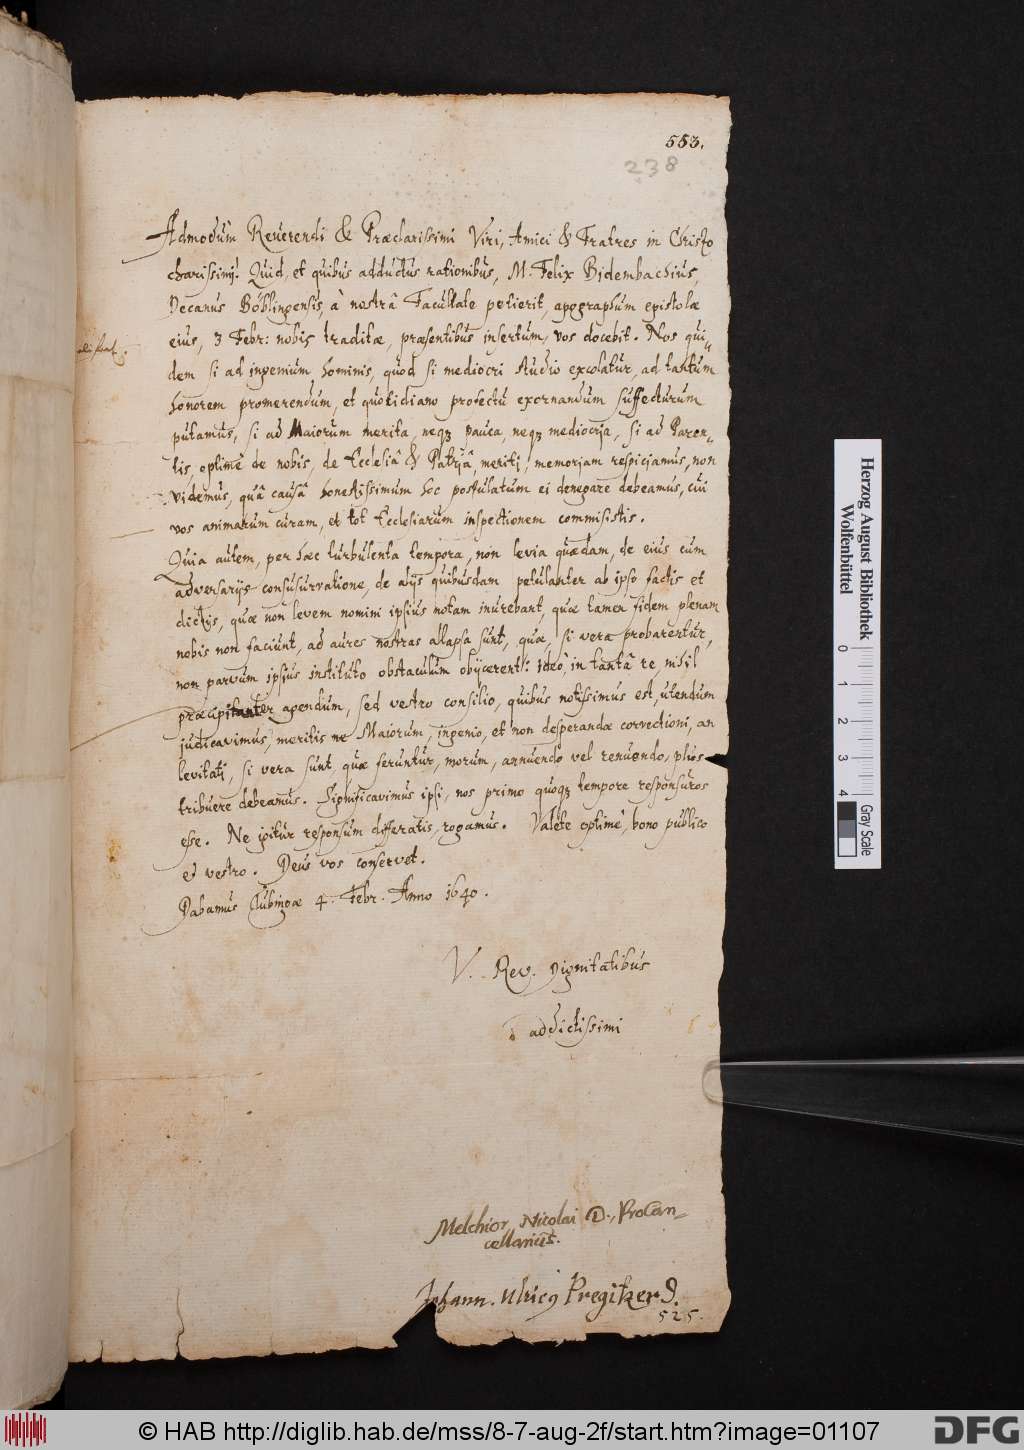 553.
238
Admodùm Reverendi & Præclarissimi Viri, Amici & Fratres in Christo
charissimi! Quid, et quibus adductus rationibus, M. Felix Bidembachius,
Decanus Böblingensis, à nostrâ Facultate petierit, apographum epistolæ
eius, 3 Febr: nobis traditæ, præsentibus insertum, vos docebit. Nos qui„
dem si ad ingenium hominis, quod si mediocri studio excolatur, ad tantum
honorem promerendum, et quotidiano profectu exornandum suffecturum
putamus, si ad Maiorum merita, neqz pauca, neqz mediocria, si ad Paren„
tis, optimè de nobis, de Ecclesiâ & Patriâ, meriti, memoriam respiciamus, non
videmus, quâ causâ honestissimum hoc postulatum ei denegare debeamus, cui
vos animarum curam, et tot Ecclesiarum inspectionem commisistis.
Quia autem, per hæc turbulenta tempora, non levia quædam, de eius cum
adversarijs consusurratione, de alijs quibusdam petulanter ab ipso factis et
dictis, quæ non levem nomini ipsius notam inurebant, quæ tamen fidem plenam
nobis non faciunt, ad aures nostras allapsa sunt, quæ, si vera probarentur,
non parvum ipsius instituto obstaculum obijcerent: ideò, in tantâ re nihil
præcipitanter agendum, sed vestro consilio, quibus notissimus est, utendum
judicavimus, meritis ne Maiorum, ingenio, et non desperandæ correctioni, an
levitati, si vera sunt quæ feruntur, morum, annuendo vel renuendo, plus
tribuere debeamus. Significavimus ipsi, nos primo quoqz tempore responsuros
esse. Ne igitur responsum differatis, rogamus. Valete optimè, bono publico
et vestro. Deus vos conservet.
Dabamus Tubingæ 4. Febr. Anno 1640.
V. Rev. Dignitatibus
addictissimi
Melchior Nicolai D., ProCan„
cellarius.
Johann. Ulricg Pregitzer D.
525.
Herzog August Bibliothek
Wolfenbüttel
0 1 2 3 4
Gray Scale
© HAB http://diglib.hab.de/mss/8-7-aug-2f/start.htm?image=01107
DFG